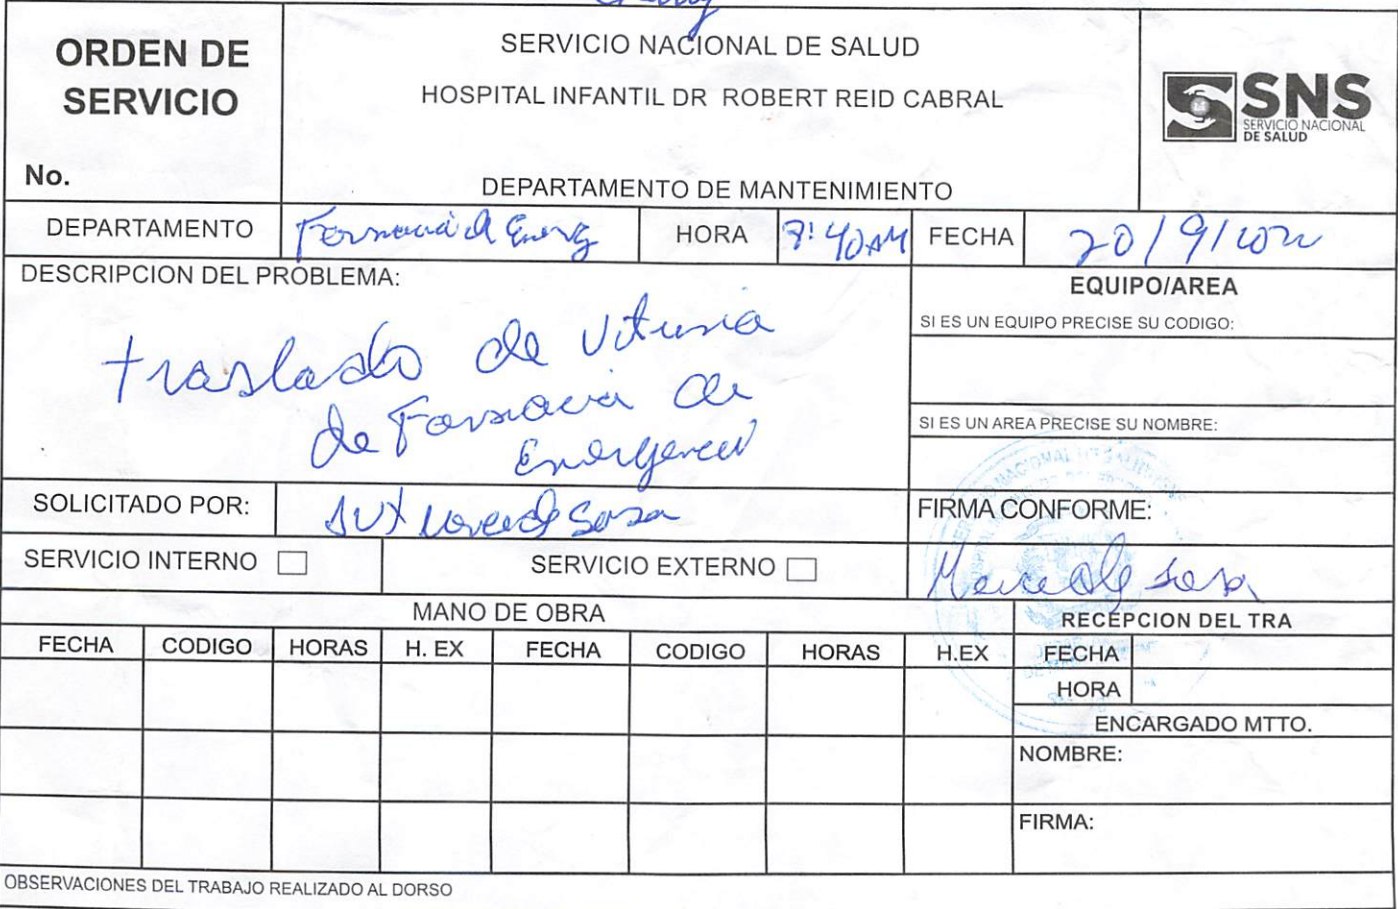 ORDEN DE
SERVICIO
No.
SERVICIO NACIONAL DE SALUD
HOSPITAL INFANTIL DR ROBERT REID CABRAL
DEPARTAMENTO DE MANTENIMIENTO
SNS
SERVICIO NACIONAL
DE SALUD
DEPARTAMENTO Farmacia d Emerg HORA 9:40 AM FECHA 20/9/2022
DESCRIPCION DEL PROBLEMA:
traslado de Vitrina
de Farmacia de
Emergencia
EQUIPO/AREA
SI ES UN EQUIPO PRECISE SU CODIGO:
SI ES UN AREA PRECISE SU NOMBRE:
SOLICITADO POR: Sosa
FIRMA CONFORME:
Mercedes Sosa
SERVICIO INTERNO
SERVICIO EXTERNO
MANO DE OBRA
RECEPCION DEL TRA
FECHA CODIGO HORAS H. EX FECHA CODIGO HORAS H.EX FECHA
HORA
ENCARGADO MTTO.
NOMBRE:
FIRMA:
OBSERVACIONES DEL TRABAJO REALIZADO AL DORSO